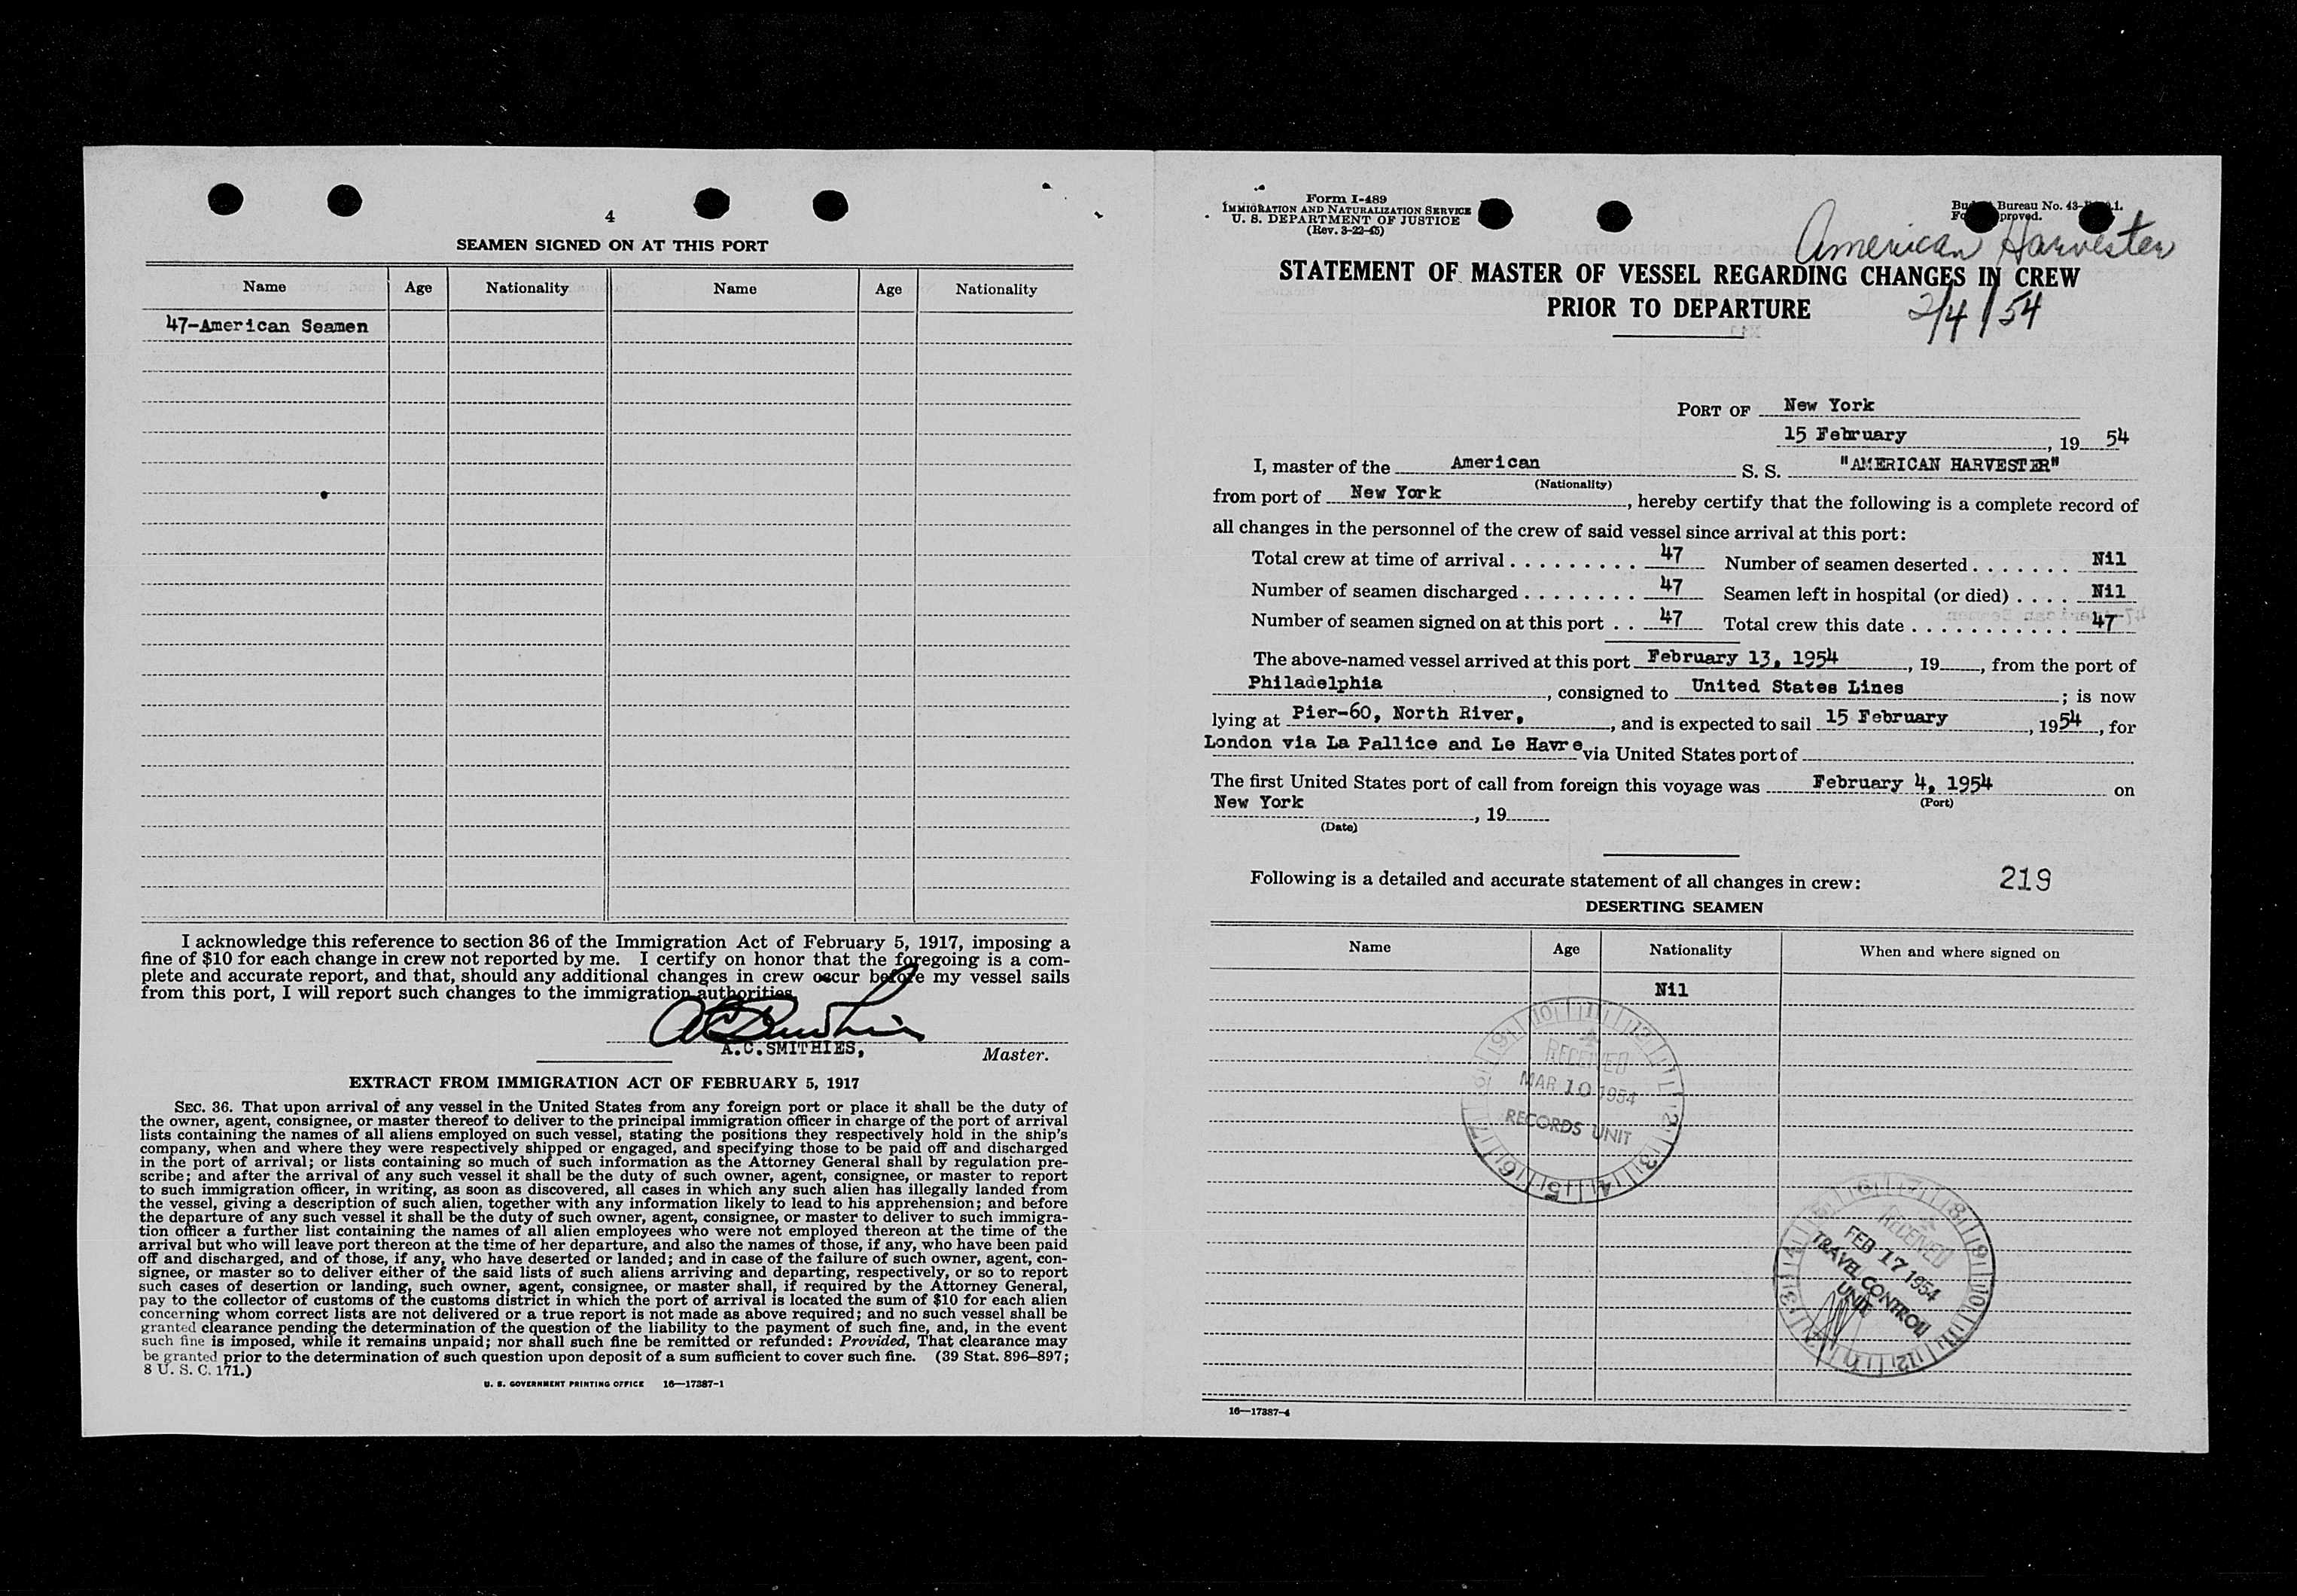 4
SEAMEN SIGNED ON AT THIS PORT
Name Age Nationality Name Age Nationality
47-American Seamen
I acknowledge this reference to section 36 of the Immigration Act of February 5, 1917, imposing a
fine of $10 for each change in crew not reported by me. I certify on honor that the foregoing is a com-
plete and accurate report, and that, should any additional changes in crew occur before my vessel sails
from this port, I will report such changes to the immigration authorities.
A.C.SMITHIES,
Master.
EXTRACT FROM IMMIGRATION ACT OF FEBRUARY 5, 1917
SEC. 36. That upon arrival of any vessel in the United States from any foreign port or place it shall be the duty of
the owner, agent, consignee, or master thereof to deliver to the principal immigration officer in charge of the port of arrival
lists containing the names of all aliens employed on such vessel, stating the positions they respectively hold in the ship's
company, when and where they were respectively shipped or engaged, and specifying those to be paid off and discharged
in the port of arrival; or lists containing so much of such information as the Attorney General shall by regulation pre-
scribe; and after the arrival of any such vessel it shall be the duty of such owner, agent, consignee, or master to report
to such immigration officer, in writing, as soon as discovered, all cases in which any such alien has illegally landed from
the vessel, giving a description of such alien, together with any information likely to lead to his apprehension; and before
the departure of any such vessel it shall be the duty of such owner, agent, consignee, or master to deliver to such immigra-
tion officer a further list containing the names of all alien employees who were not employed thereon at the time of the
arrival but who will leave port thereon at the time of her departure, and also the names of those, if any, who have been paid
off and discharged, and of those, if any, who have deserted or landed; and in case of the failure of such owner, agent, con-
signee, or master so to deliver either of the said lists of such aliens arriving and departing, respectively, or so to report
such cases of desertion or landing, such owner, agent, consignee, or master shall, if required by the Attorney General,
pay to the collector of customs of the customs district in which the port of arrival is located the sum of $10 for each alien
concerning whom correct lists are not delivered or a true report is not made as above required; and no such vessel shall be
granted clearance pending the determination of the question of the liability to the payment of such fine, and, in the event
such fine is imposed, while it remains unpaid; nor shall such fine be remitted or refunded: Provided, That clearance may
be granted prior to the determination of such question upon deposit of a sum sufficient to cover such fine. (39 Stat. 896–897;
8 U. S. C. 171.)
U. S. GOVERNMENT PRINTING OFFICE 16—17387-1
Form I-489
IMMIGRATION AND NATURALIZATION SERVICE
U. S. DEPARTMENT OF JUSTICE
(Rev. 3-22-45)
Bureau No.
American Harvester
STATEMENT OF MASTER OF VESSEL REGARDING CHANGES IN CREW
PRIOR TO DEPARTURE
2/4/54
PORT OF New York
15 February, 19 54
I, master of the American S. S. "AMERICAN HARVESTER"
(Nationality)
from port of New York, hereby certify that the following is a complete record of
all changes in the personnel of the crew of said vessel since arrival at this port:
Total crew at time of arrival . . . . . . . . . 47 Number of seamen deserted . . . . . . . Nil
Number of seamen discharged . . . . . . . . 47 Seamen left in hospital (or died) . . . . Nil
Number of seamen signed on at this port . . 47 Total crew this date . . . . . . . . . . . . 47
The above-named vessel arrived at this port February 13, 1954, 19, from the port of
Philadelphia, consigned to United States Lines; is now
lying at Pier-60, North River, , and is expected to sail 15 February, 1954, for
London via La Pallice and Le Havre via United States port of
The first United States port of call from foreign this voyage was February 4, 1954 on
(Port)
New York, 19
(Date)
Following is a detailed and accurate statement of all changes in crew: 219
DESERTING SEAMEN
Name Age Nationality When and where signed on
Nil
RECEIVED
MAR 10 1954
RECORDS UNIT
RECEIVED
FEB 17 1954
TRAVEL CONTROL
UNIT
16—17387-4